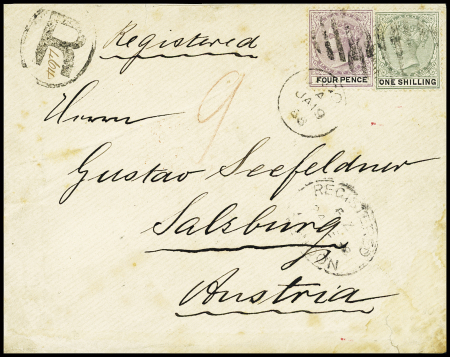 R
Registered
FOUR PENCE
ONE SHILLING
A
JA 19
88
9
Herrn
Gustav Seefeldner
REGISTERED
Salzburg
Austria